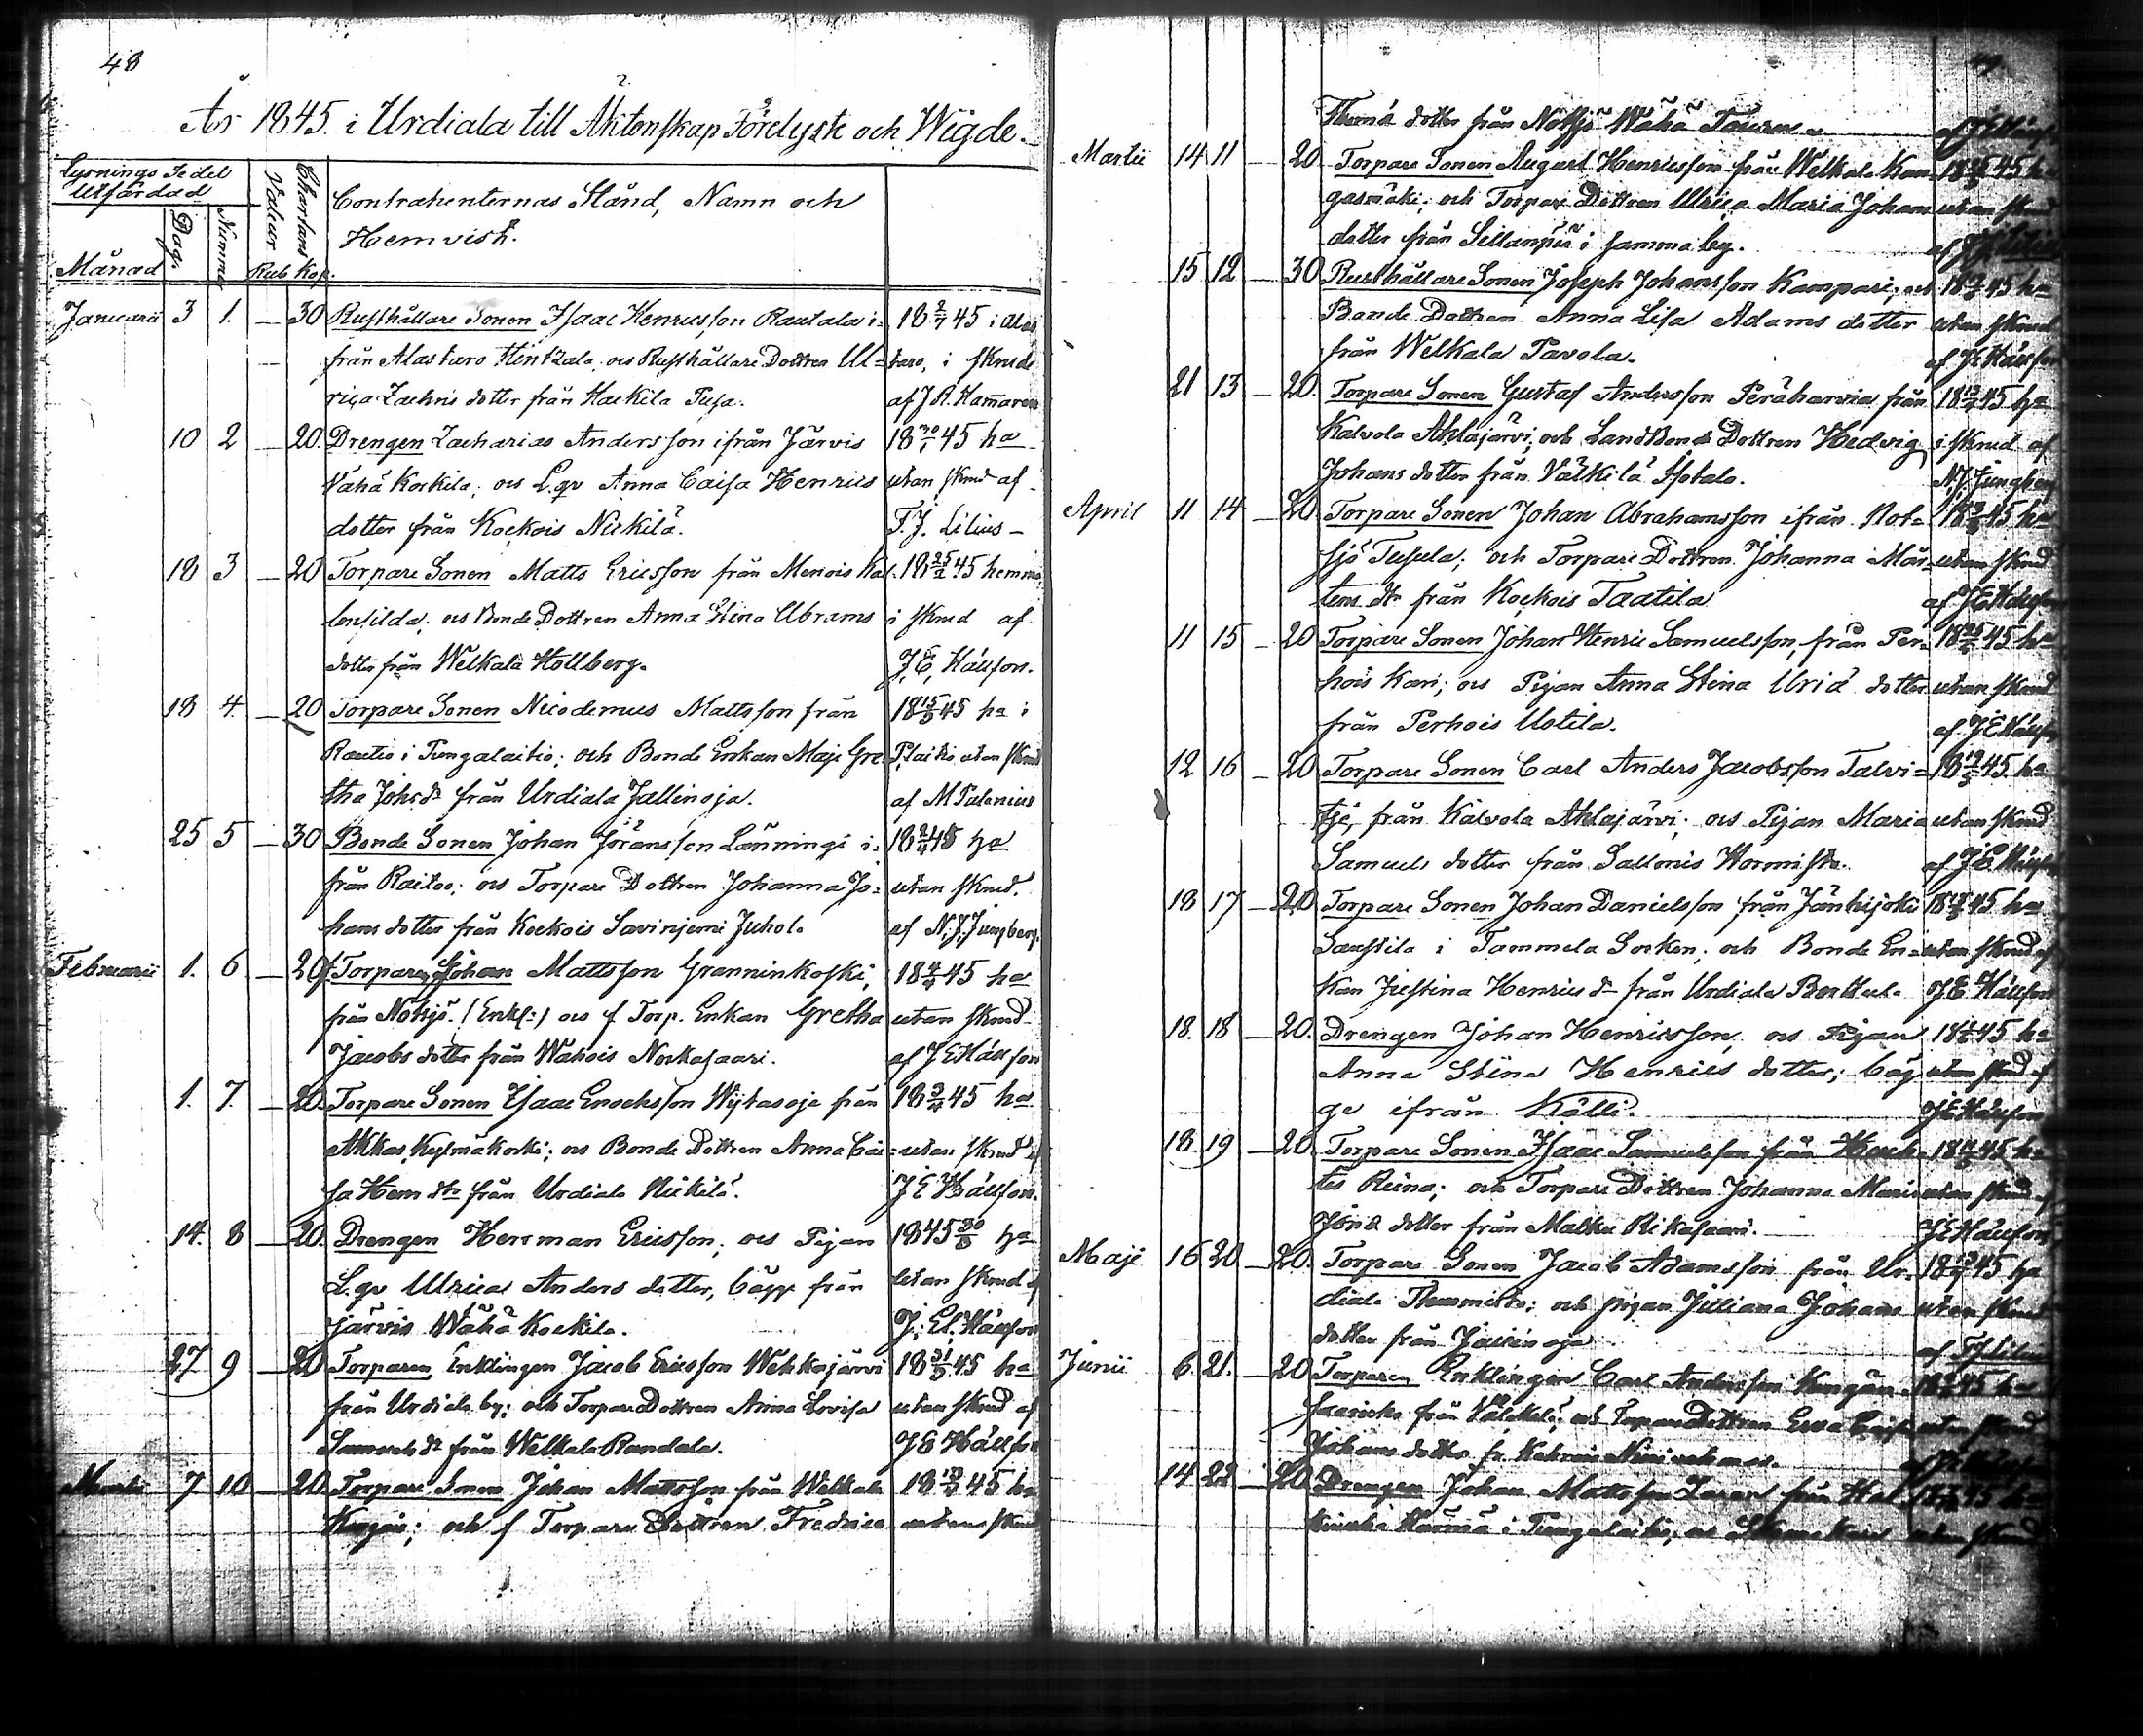 48
År 1845 i Urdiala till Äktenskap Förelyste och Wigde.
Lysnings Sedel Utfärdad
Månad Dag. Nummer
Chartans Valeur Rub Kop.
Contrahenternas Stånd, Namn och
Hemvist.
Januarii 3 1. — 30 Rusthållare Sonen Isaac Henricsson Rautala i- 18 2/7 45 i Alas
från Alastaro Hintzala, och Rusthållare Dottren Ul- taro, i skrud
rica Zachris dotter från Haekila Pusa. af J A. Hammaren
10 2 — 20. Drengen Zacharias Andersson ifrån Järvis 18 30/1 45 ha
Vähä Kockila; och L.qv Anna Caisa Henrics utan skrud af
dotter från Kockois Nickilä. F. J. Lilius —
18 3 — 20 Torpare Sonen Matts Ericsson från Menois Kol- 18 25/2 45 hemma
lensilda; och Bonde Dottren Anna Stina Abrams i skrud af
dotter från Welkala Hollberg. J. E. Hällfon.
18 4. — 20 Torpare Sonen Nicodemus Mattsson från 18 15/3 45 ha i
Rautio i Pungalaitio; och Bonde Enkan Maja Gre- P.laitio utan skrud
tha Johs dr från Urdiala Jallinoja. af M Palenius
25 5 — 30 Bonde Sonen Johan Jöransson Länningi i- 18 2/4 45 ha
från Raitoo; och Torpare Dottren Johanna Jo- utan skrud.
hans dotter från Kockois Savinjemi Juhola af N. J. Jungberg.
Februarii 1. 6 — 20 f. Torparen Johan Mattsson Granninkoski, 18 4/4 45 ha
från Notsjö. (Enkl:) och f Torp. Enkan Gretha utan skrud
Jacobs dotter från Wahois Norkasaari. af J E Hällfon
1. 7. — 20. Torpare Sonen Isaac Enochsson Wijtasoja från 18 3/4 45 ha
Akkas Kylmäkoski; och Bonde Dottren Anna Cai- utan skrud af
sa Henr dtr från Urdiala Nickilä. J E Hällfon.
14. 8 — 20. Drengen Herrman Ericsson; och Pigan 1845 30/3 ha
L.qv Ulrica Anders dotter, bägge från utan skrud af
Järvis Wähä Kockila. J. E. Hällfon
27 9 — 20 Torparen, Enklingen Jacob Ericsson Wehkajärvi 18 31/3 45 ha
från Urdiala by; och Torpare Dottren Anna Lovisa utan skrud af
Samuels dr från Welkala Randala. J E Hällfon
Martii 7 10 — 20. Torpare Sonen Johan Mattsson från Welkala 18 45 ha
Kangas; och f Torpare Dottren Fredrica utan skrud
49.
Thomæ dotter från Notsjö Wähä Touru
Martii 14 11 — 20 Torpare Sonen August Henricsson från Welkala Kan- 18 45 ha
gasmäki; och Torpare Dottren Ulrica Maria Johans utan skrud
dotter från Sillanpää i samma by. af
15 12 — 30 Rusthållare Sonen Joseph Johansson Kampari; och 18 45 ha
Bonde Dottren Anna Lisa Adams dotter utan skrud
från Welkala Pavola. af J E Hällfon
21 13 — 20. Torpare Sonen Gustaf Andersson Peräharvia från 18 13/4 45 ha
Kalvola Ahlajärvi; och Landbonde Dottren Hedvig i skrud af
Johans dotter från Välkilä Isotalo. N. J. Jungberg
April 11 14 — 20 Torpare Sonen Johan Abrahamsson ifrån Not- 18 45 ha
sjö Tupula; och Torpare Dottren Johanna Mår- utan skrud
tens dr från Kockois Taatila af J E Hällfon
11 15 — 20 Torpare Sonen Johan Henric Samuelsson, från Per- 18 45 ha
hois Kari; och Pigan Anna Stina Uriæ dotter utan skrud
från Perhois Uotila. af J E Hällfon
12 16 — 20 Torpare Sonen Carl Anders Jacobsson Talvi- 18 45 ha
tje, från Kalvola Ahlajärvi; och Pigan Maria utan skrud
Samuels dotter från Sallonis Wormisto. af J E Hällfon
18 17 — 20 Torpare Sonen Johan Danielsson från Jänhijoki 18 45 ha
Saustila i Tammela Socken; och Bonde En- utan skrud af
kan Justina Henrics dr från Urdiala Perttula J E Hällfon
18. 18 — 20. Drengen Johan Henricsson, och Pigan 18 45 ha
Anna Stina Henrics dotter; bäg- utan skrud af
ge ifrån Källi. J E Hällfon
18. 19 — 20 Torpare Sonen Isaac Samuelsson från Huch- 18 45 ha
tis Riina; och Torpare Dottren Johanna Maria utan skrud af
Jöns dotter från Matku Rikasaari. J E Hällfon
Maji 16 20 — 20. Torpare Sonen Jacob Adamsson från Ur- 18 45 ha
diala Thurmisto; och pigan Juliana Johans utan skrud
dotter från af F J Lilius
Junii 6. 21. — 20 Torparen Enklingen Carl Andersson 18 45 ha
från Välckilä; och Torpare Dottren Ewa Caisa utan skrud
Johans dotter fr. Kehrois
14 22 — 20 Drengen Johan Mattsson från 18 45 ha
i Pungalaitio; och utan skrud